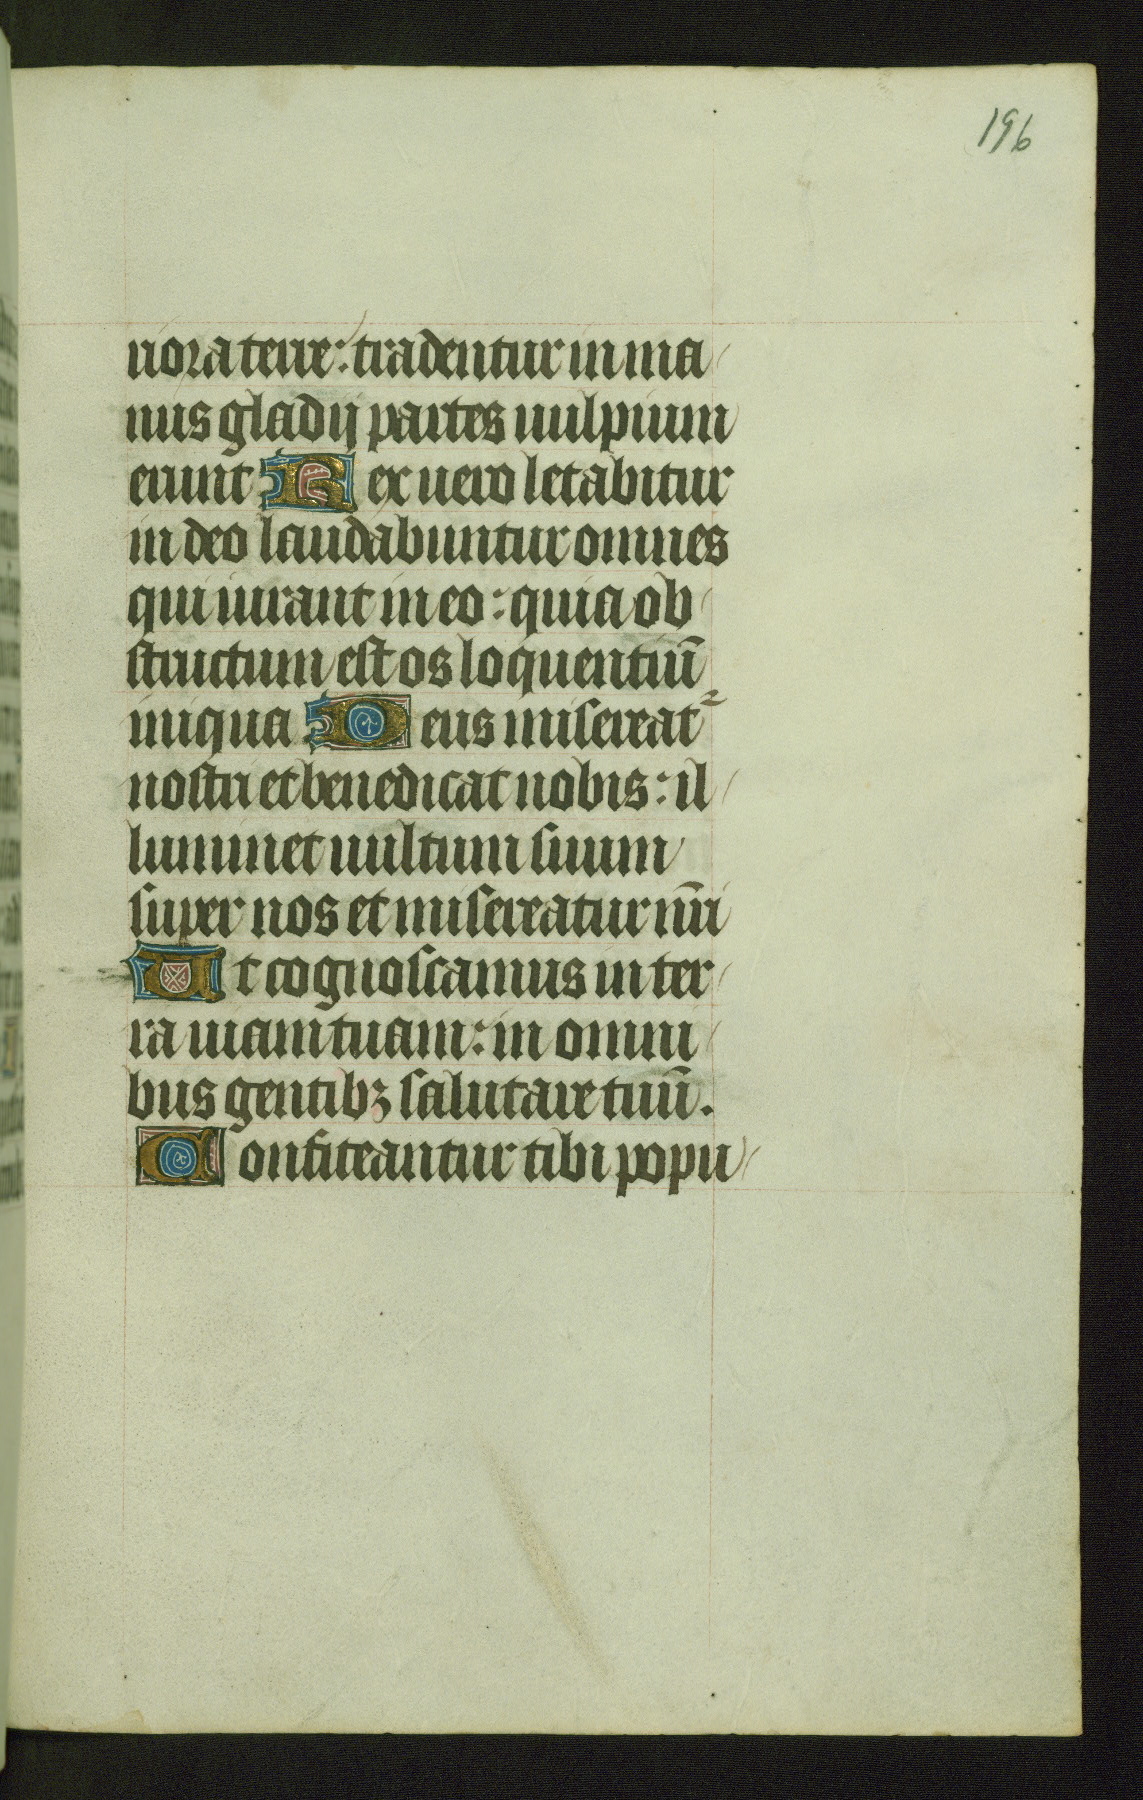 196
riora terre: tradentur in ma
nus gladij partes uulpium
erunt Rex uero letabitur
in deo laudabuntur omnes
qui iurant in eo: quia ob
structum est os loquentiū
iniqua Deus misereat᷑
nostri et benedicat nobis: il
luminet uultum suum
super nos et misereatur nr̄i
Ut cognoscamus in ter
ra uiam tuam: in omni
bus gentibꝫ salutare tuū.
Confiteantur tibi popu